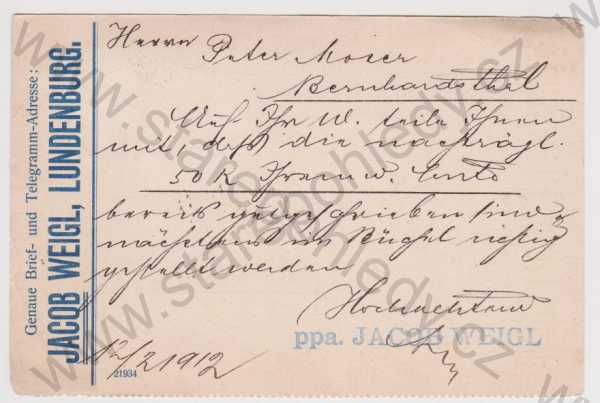 Genaue Brief- und Telegramm-Adresse:
JACOB WEIGL, LUNDENBURG.
Herrn Peter Moser
Bernhardsthal
Auf Ihr W. teile Ihnen
mit, daß die nachträgl.
50 K Ihrem w. Conto
bereits gutgeschrieben sind
nächstens im Büchel richtig
gestellt werden
Hochachtend
ppa. JACOB WEIGL
12/2 1912
21934
www.starepohledy.cz